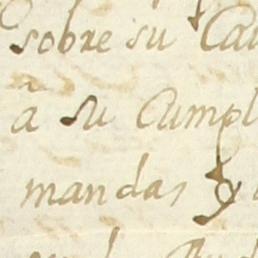 sobre su Cau
à su Cumpl
mandas y